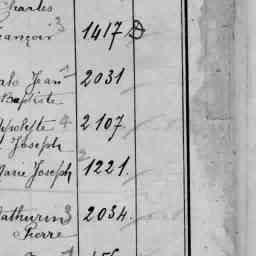 Charles
ançois 3 1417 D
Jean 1 2031
Baptiste
ppolyte 4 2107
Joseph
Marie Joseph 2 1221.
Mathurin 3 2034.
Pierre